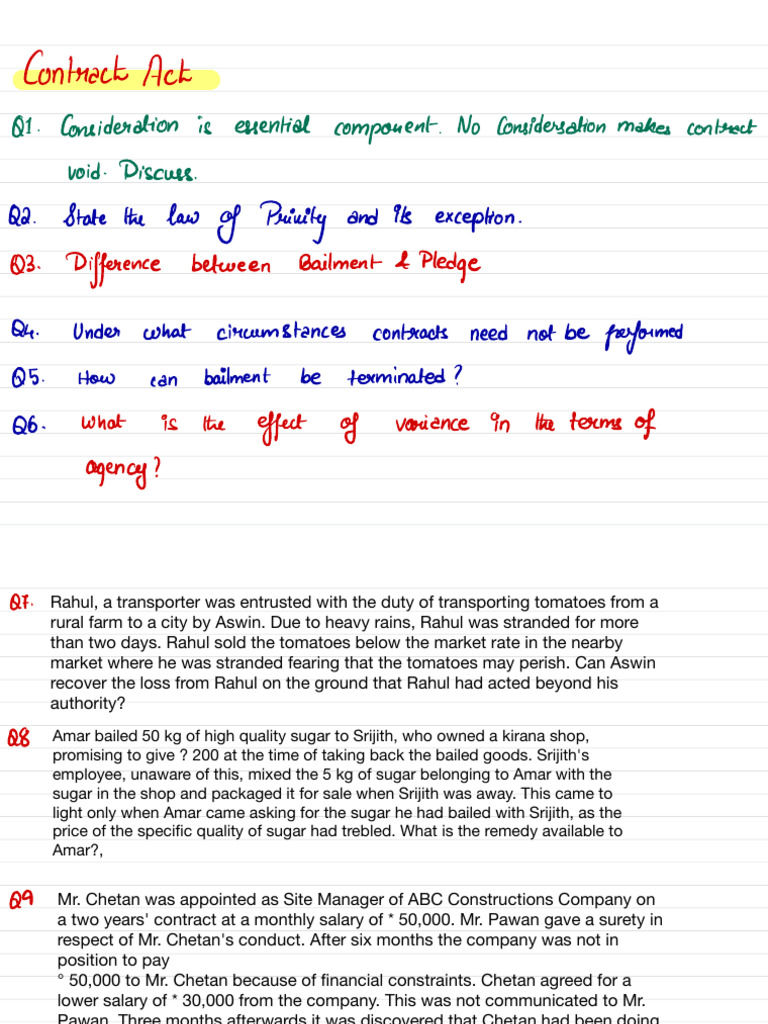 Contract Act
Q1. Consideration is essential component. No Consideration makes contract
void. Discuss.
Q2. State the law of Privity and its exception.
Q3. Difference between Bailment & Pledge
Q4. Under what circumstances contracts need not be performed
Q5. How can bailment be terminated?
Q6. What is the effect of variance in the terms of
agency?
Q7. Rahul, a transporter was entrusted with the duty of transporting tomatoes from a
rural farm to a city by Aswin. Due to heavy rains, Rahul was stranded for more
than two days. Rahul sold the tomatoes below the market rate in the nearby
market where he was stranded fearing that the tomatoes may perish. Can Aswin
recover the loss from Rahul on the ground that Rahul had acted beyond his
authority?
Q8 Amar bailed 50 kg of high quality sugar to Srijith, who owned a kirana shop,
promising to give ? 200 at the time of taking back the bailed goods. Srijith's
employee, unaware of this, mixed the 5 kg of sugar belonging to Amar with the
sugar in the shop and packaged it for sale when Srijith was away. This came to
light only when Amar came asking for the sugar he had bailed with Srijith, as the
price of the specific quality of sugar had trebled. What is the remedy available to
Amar?,
Q9 Mr. Chetan was appointed as Site Manager of ABC Constructions Company on
a two years' contract at a monthly salary of * 50,000. Mr. Pawan gave a surety in
respect of Mr. Chetan's conduct. After six months the company was not in
position to pay
° 50,000 to Mr. Chetan because of financial constraints. Chetan agreed for a
lower salary of * 30,000 from the company. This was not communicated to Mr.
Pawan. Three months afterwards it was discovered that Chetan had been doing